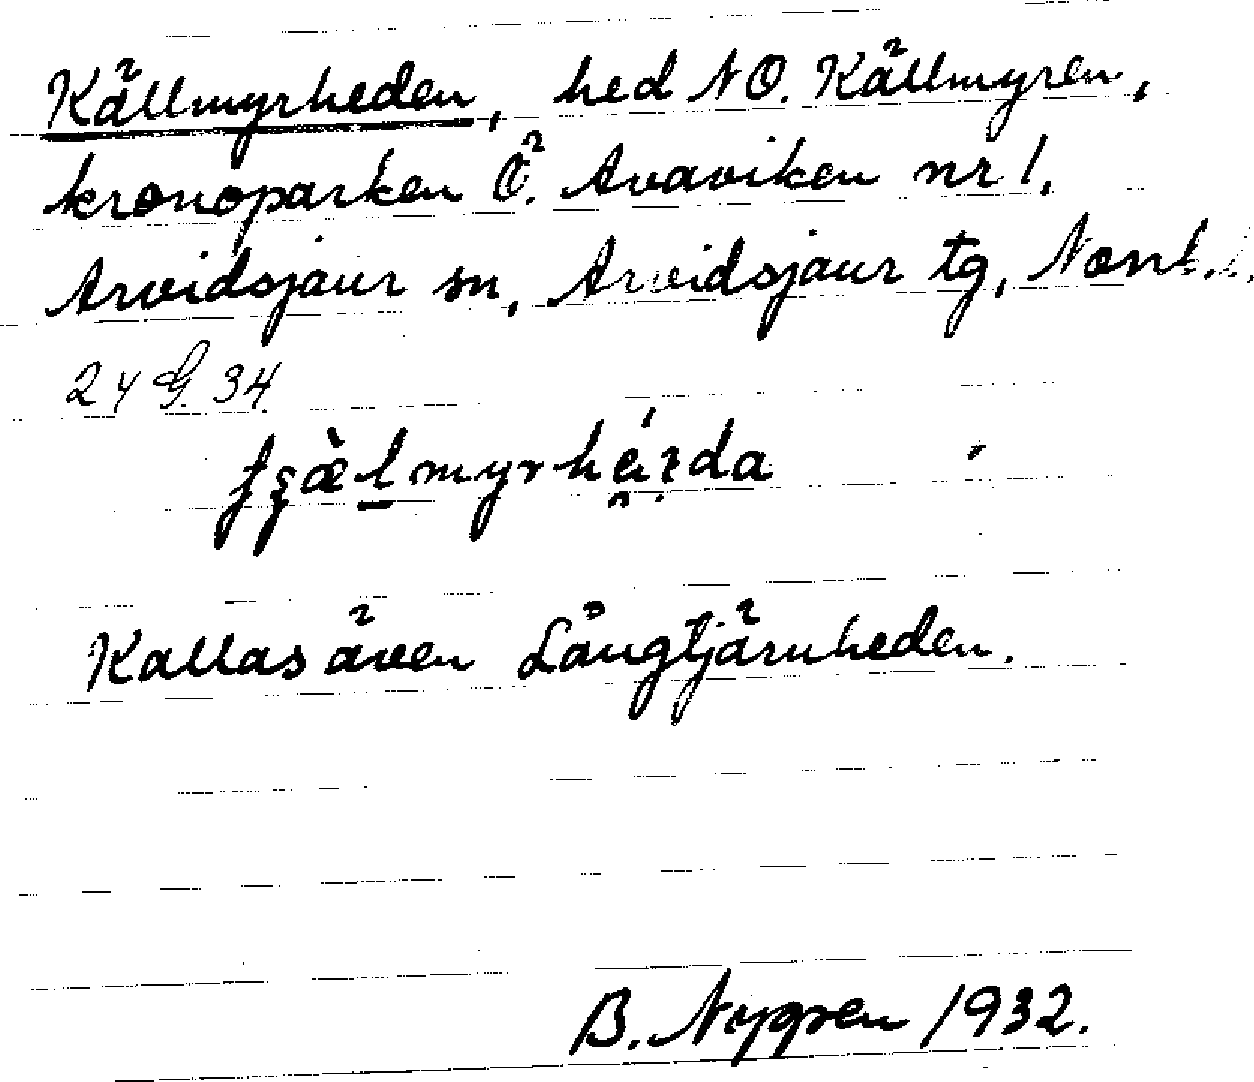 Källmyrheden, hed NO. Källmyren,
kronoparken Ö. Avaviken nr 1.
Arvidsjaur sn, Arvidsjaur tg, Norrl.
24 G. 34
Kallas även Långtjärnheden.
B. Nygren 1932.